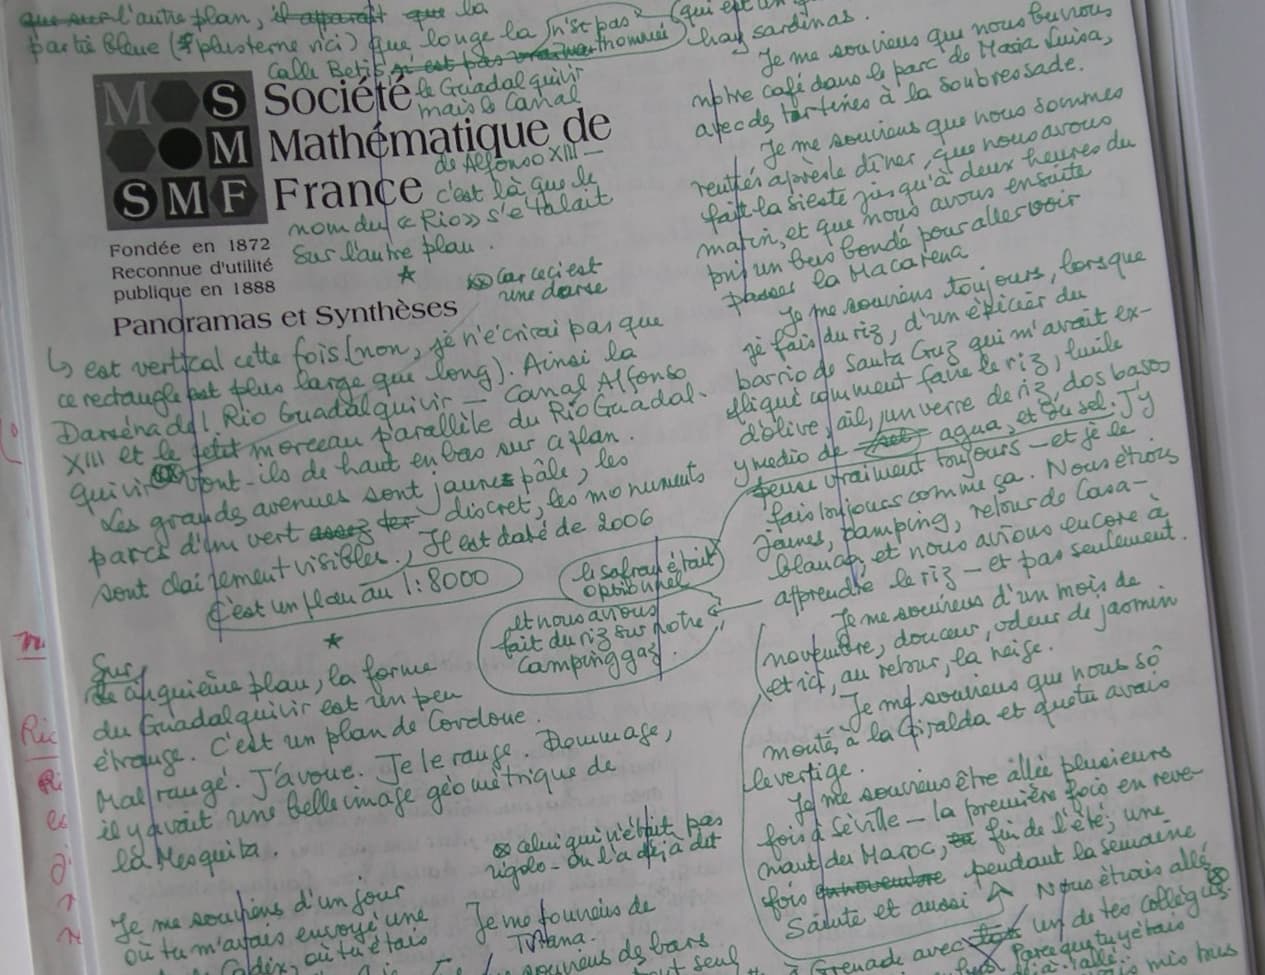 l'autre plan, il apparait que la
partie bleue (plus terne ici) que longe la n'est pas
Calle Betis n'est pas nommée
le Guadalquivir
mais le Canal
de Alfonso XIII —
c'est là que le
nom du « Rio » s'étalait
sur l'autre plan.
M S
M
SMF
Société
Mathématique de
France
Fondée en 1872
Reconnue d'utilité
publique en 1888
Panoramas et Synthèses
car ceci est
une darse
est vertical cette fois (non, je n'écrirai pas que
ce rectangle est plus large que long). Ainsi la
Darséna del Rio Guadalquivir — Canal Alfonso
XIII et le petit morceau parallèle du Río Guadal-
quivir vont-ils de haut en bas sur ce plan
Les grandes avenues sont jaune pâle, les
parcs d'un vert assez discret, les monuments
sont clairement visibles. Il est daté de 2006
C'est un plan au 1:8000
le safran était
optionnel
et nous avions
fait du riz sur notre
camping gaz.
Sur
le cinquième plan, la forme
du Guadalquivir est un peu
étrange. C'est un plan de Cordoue.
Mal rangé. J'avoue. Je le range. Dommage,
il y avait une belle image géométrique de
la Mesquita.
celui qui n'était pas
rigolo - on l'a déjà dit
Je me souviens d'un jour
où tu m'avais envoyé une
Cadix, où tu étais
Je me souviens de
Triana.
souviens de bars
(qui est un
hay sardinas.
Je me souviens que nous buvions
notre café dans le parc de Maria Luisa,
avec des tartines à la soubressade.
Je me souviens que nous sommes
rentrés après le dîner, que nous avons
fait la sieste jusqu'à deux heures du
matin, et que nous avons ensuite
pris un bus bondé pour aller voir
passer la Macarena
Je me souviens toujours, lorsque
je fais du riz, d'un épicier du
barrio de Santa Cruz qui m'avait ex-
pliqué comment faire le riz, huile
d'olive, ail, un verre de riz, dos basos
y medio de agua, et du sel. J'y
pense vraiment toujours — et je le
fais toujours comme ça. Nous étions
jeunes, camping, retour de Casa-
blanca, et nous avions encore à
apprendre le riz — et pas seulement.
Je me souviens d'un mois de
novembre, douceur, odeur de jasmin
et ici, au retour, la neige.
Je me souviens que nous so
montés à la Giralda et que tu avais
le vertige.
Je me souviens être allée plusieurs
fois à Séville — la première fois en reve-
nant du Maroc, fin de l'été, une
fois en novembre pendant la semaine
Sainte et aussi Nous étions allé
Grenade avec un de tes collègues
Parce que tu y étais